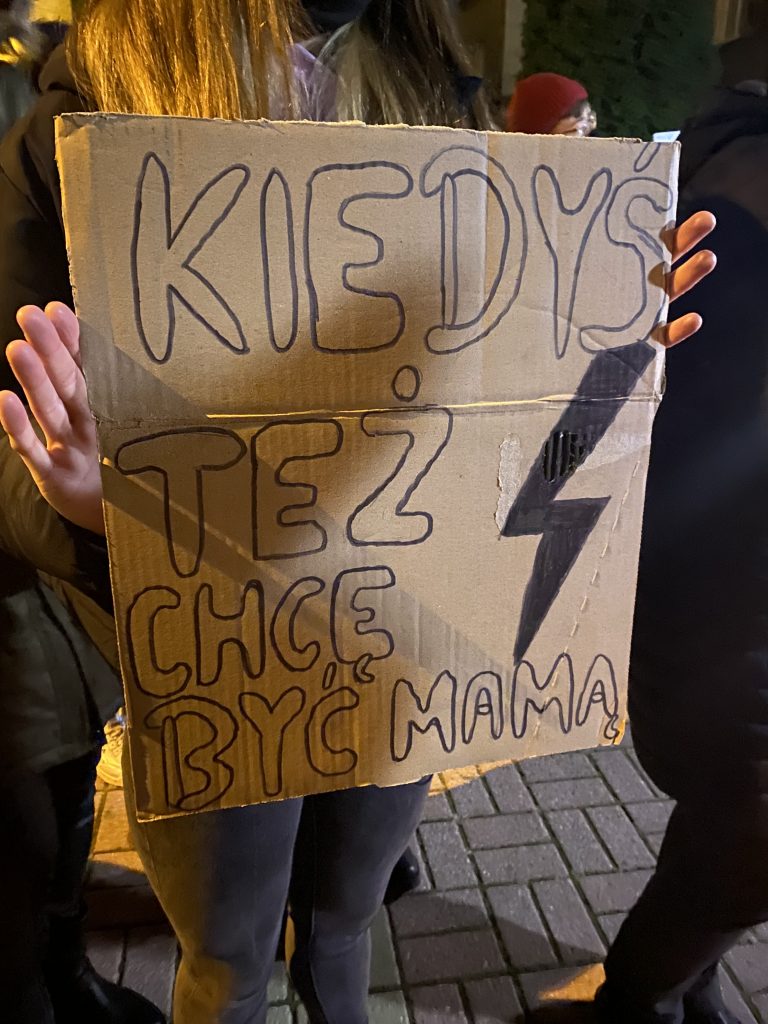 KIEDYŚ
TEŻ
CHCĘ
BYĆ MAMĄ